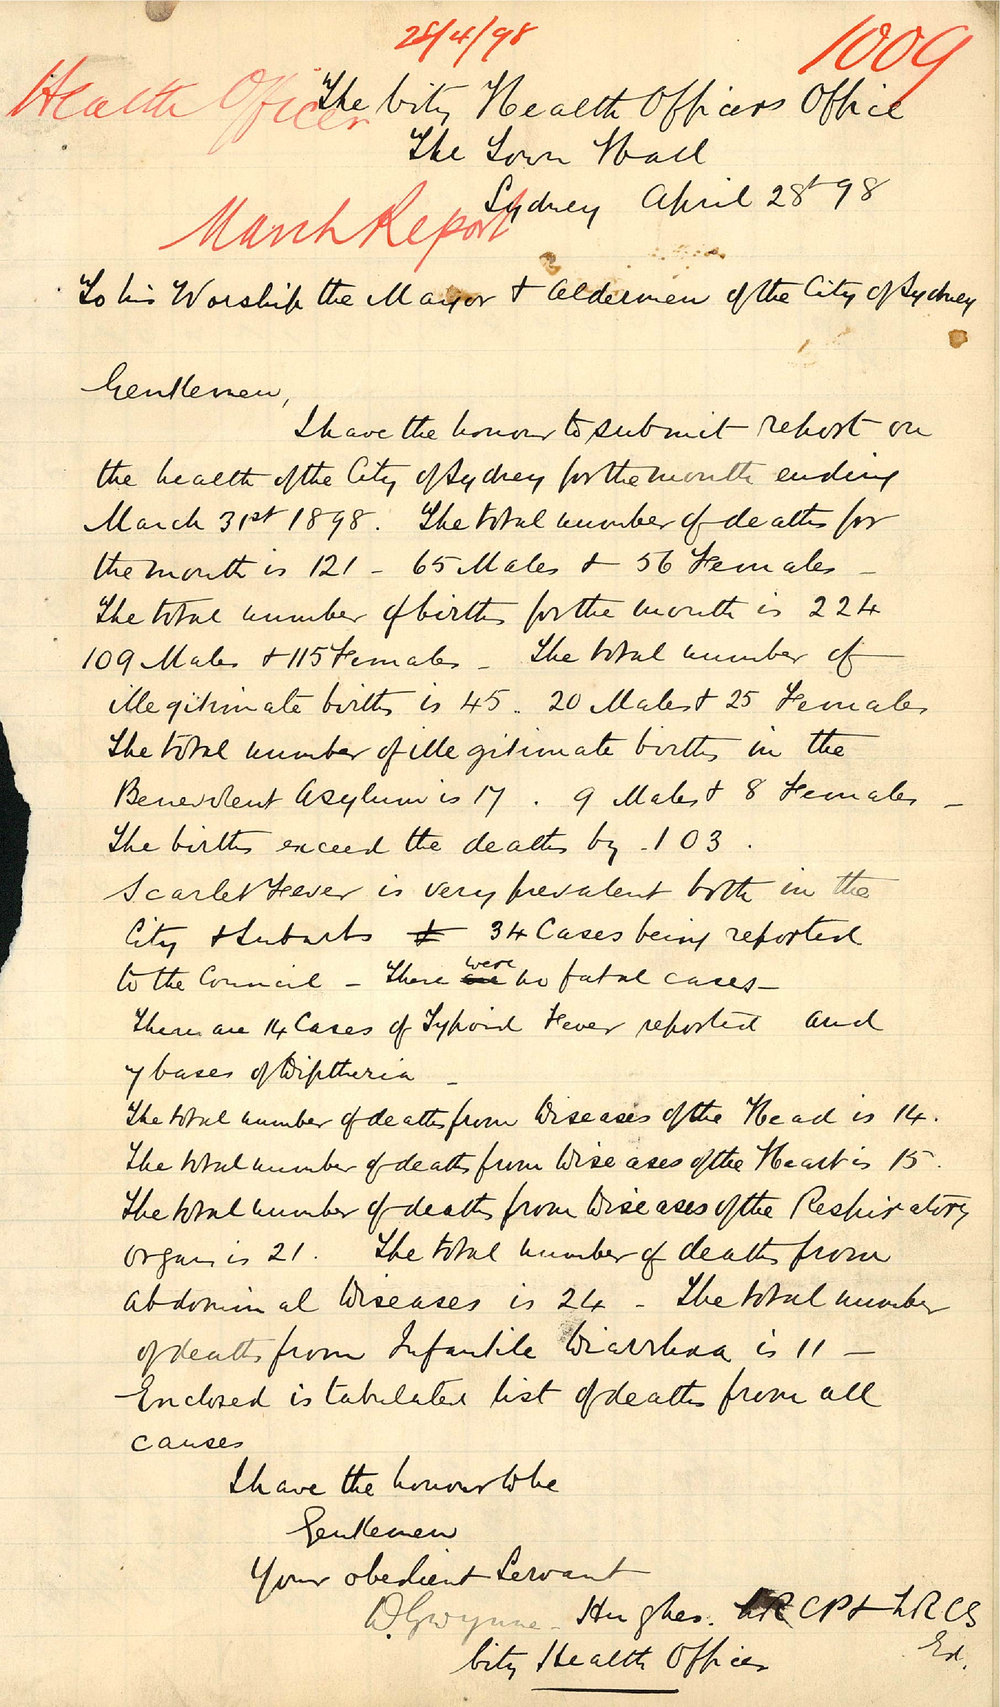 28/4/98
1009
Health Officer
The City Health Officers Office
The Town Hall
Sydney April 28th 98
March Report
To his Worship the Mayor & Aldermen of the City of Sydney
Gentlemen,
I have the honour to submit report on
the health of the City of Sydney for the month ending
March 31st 1898. The total number of deaths for
the month is 121 - 65 Males & 56 Females -
The total number of births for the month is 224
109 Males & 115 Females - The total number of
illegitimate births is 45. 20 Males & 25 Females
The total number of illegitimate births in the
Benevolent Asylum is 17. 9 Males & 8 Females -
The births exceed the deaths by 103.
Scarlet Fever is very prevalent both in the
City & Suburbs 34 Cases being reported
to the Council - There were no fatal cases -
There are 14 Cases of Typoid Fever reported and
7 Cases of Diptheria -
The total number of deaths from Diseases of the Head is 14.
The total number of deaths from Diseases of the Heart is 15.
The total number of deaths from Diseases of the Respiratory
organs is 21. The total number of deaths from
Abdominal Diseases is 24 - The total number
of deaths from Infantile Diarrhoea is 11 -
Enclosed is tabulated list of deaths from all
causes
I have the honour to be
Gentlemen
Your obedient Servant
D. Gwynne - Hughes. LRCP & LRCS
Ed.
City Health Officer